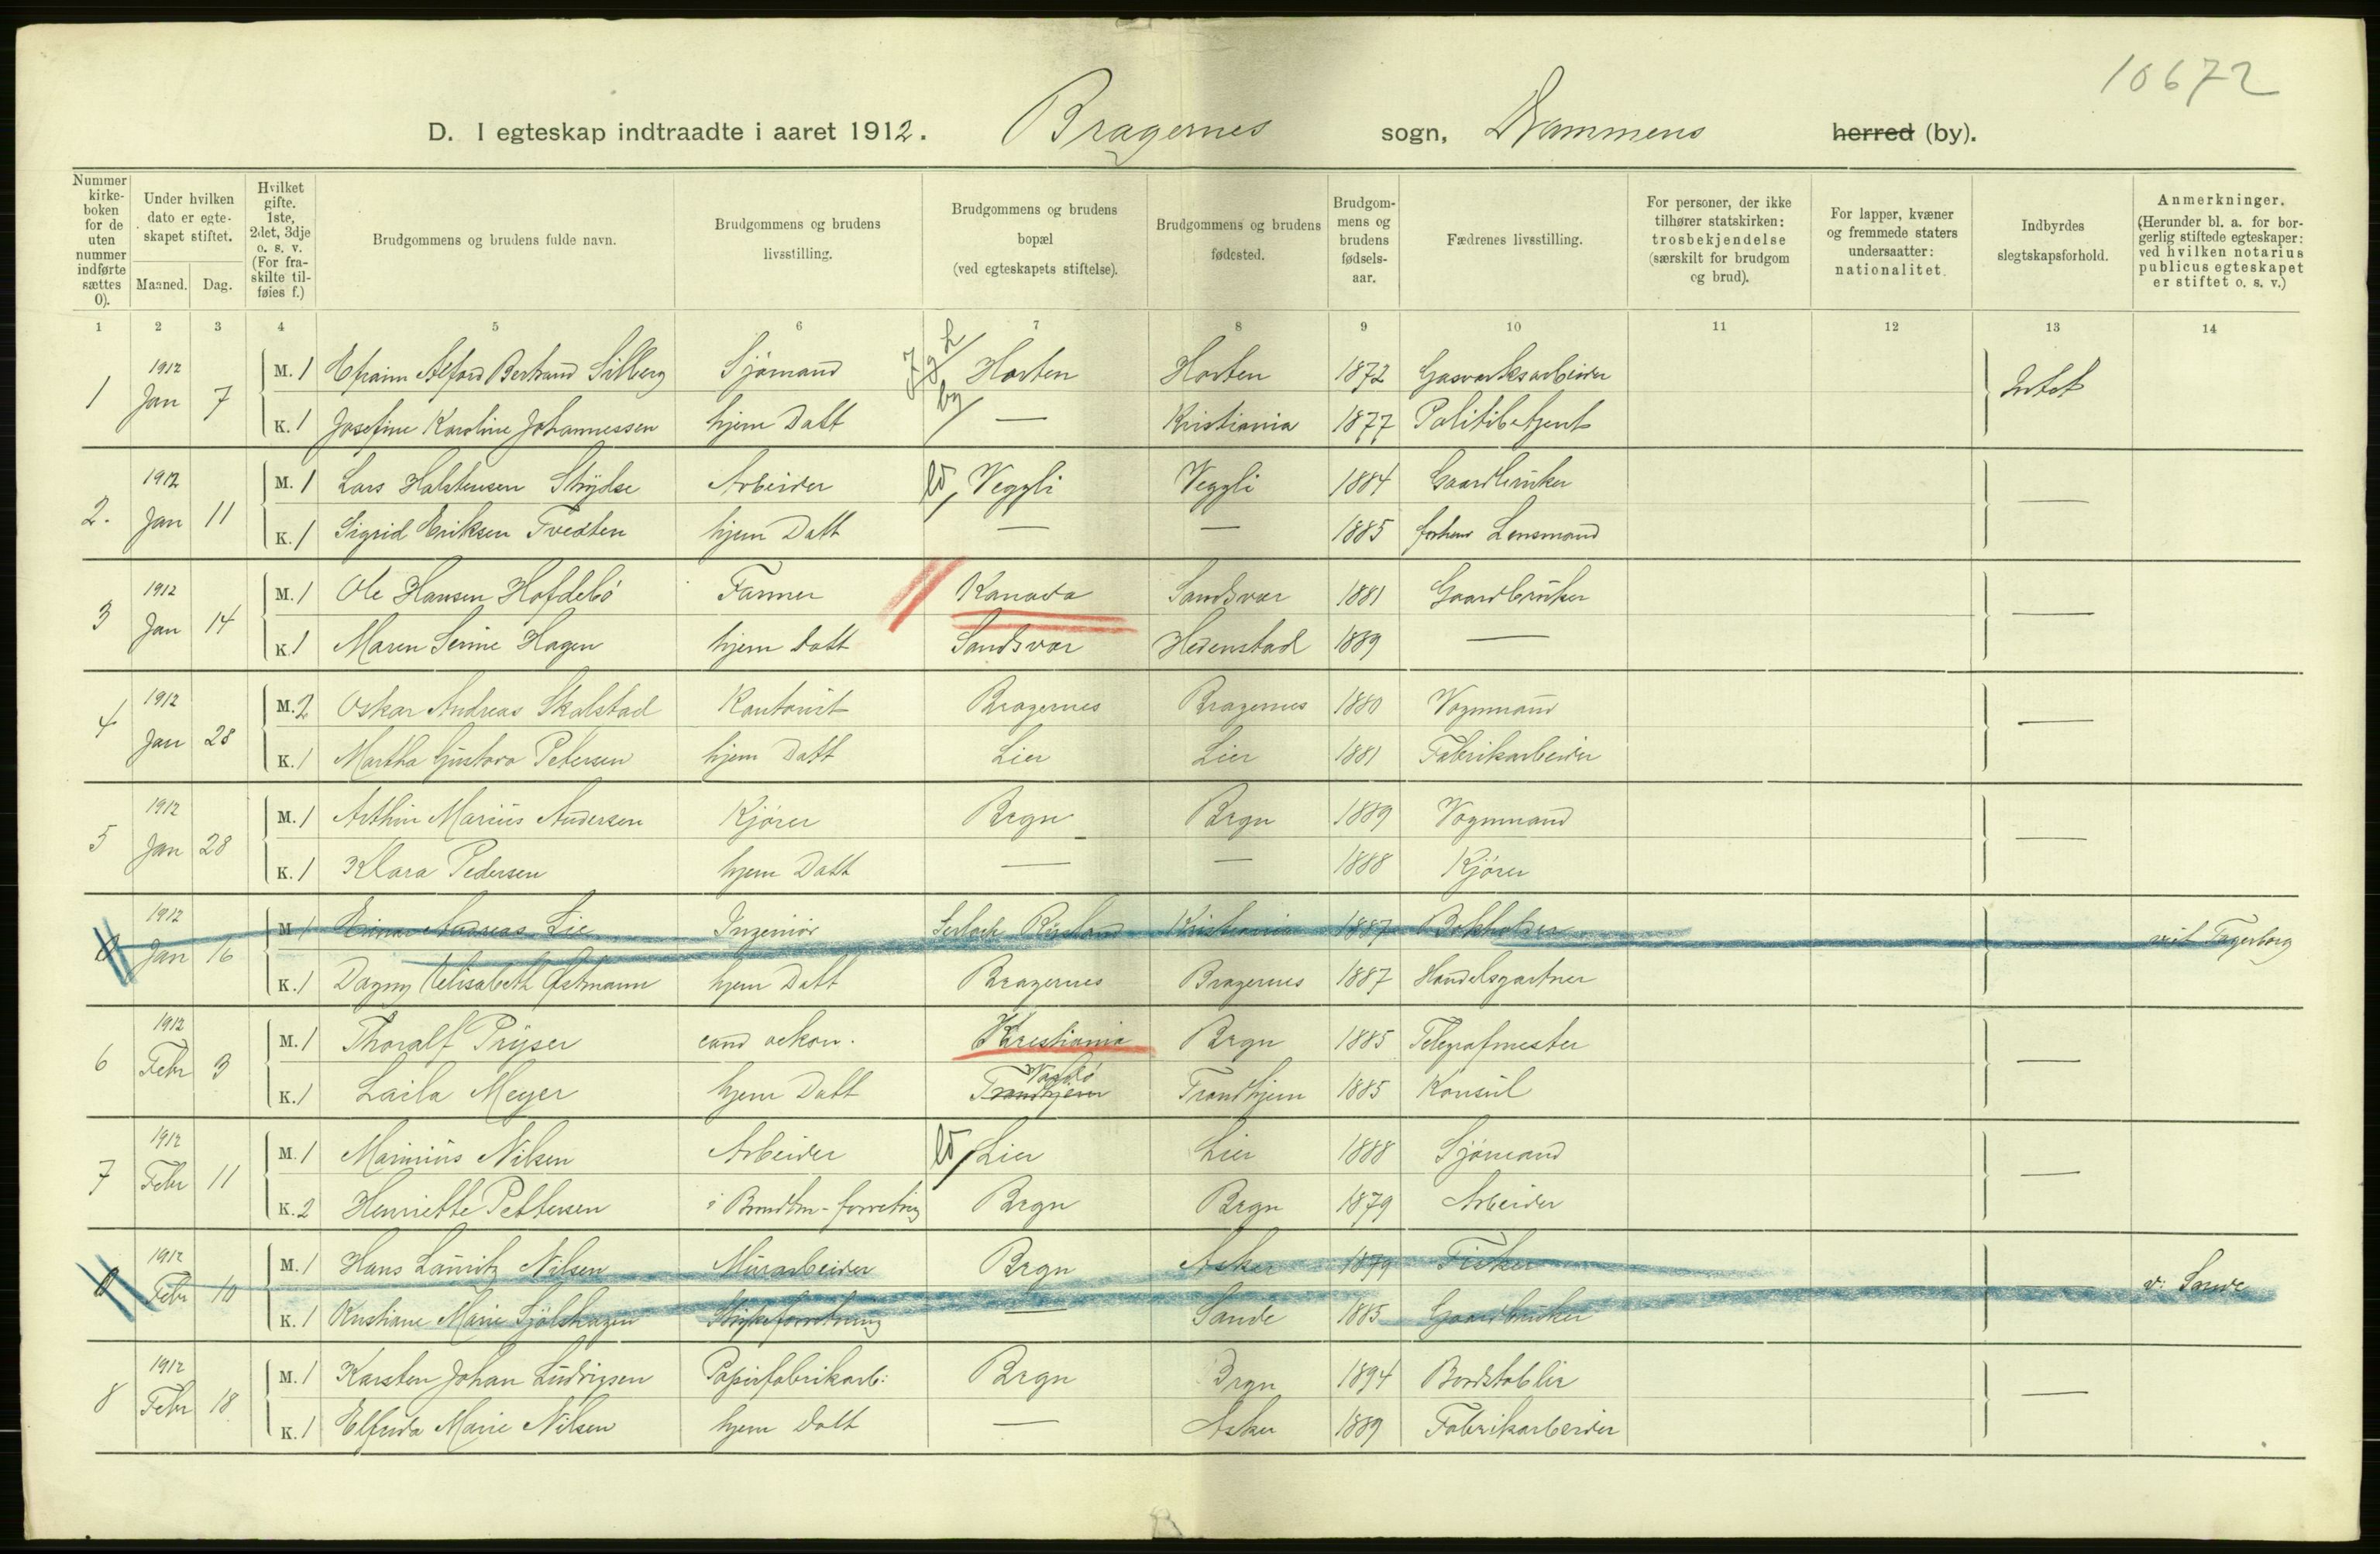 10672
D. I egteskap indtraadte i aaret 1912. Bragernes sogn, Drammens herred (by).
Nummer kirke-boken for de uten nummer indførte sættes 0).
Under hvilken dato er egte-skapet stiftet.
Maaned. Dag.
Hvilket gifte. 1ste, 2det, 3dje o. s. v. (For fra-skilte til-føies f.)
Brudgommens og brudens fulde navn.
Brudgommens og brudens livsstilling.
Brudgommens og brudens bopæl (ved egteskapets stiftelse).
Brudgommens og brudens fødested.
Brudgom-mens og brudens fødsels-aar.
Fædrenes livsstilling.
For personer, der ikke tilhører statskirken: trosbekjendelse (særskilt for brudgom og brud).
For lapper, kvæner og fremmede staters undersaatter: nationalitet.
Indbyrdes slegtskapsforhold.
Anmerkninger. (Herunder bl. a. for bor-gerlig stiftede egteskaper: ved hvilken notarius publicus egteskapet er stiftet o. s. v.)
1 2 3 4 5 6 7 8 9 10 11 12 13 14
1 1912 Jan 7 M. 1 Efraim Alford Bertrand Silberg Sjømand Horten Horten 1872 Gasverksarbeider Intet
K. 1 Josefine Karoline Johannessen hjem Datt by — Kristiania 1877 Politibetjent
2. 1912 Jan 11 M. 1 Lars Halstensen Veggli Veggli 1884 Gaardbruker —
Arbeider
K. 1 Sigrid Eriksen Tvedten hjem Datt — — 1885 forhenv Lensmand
3 1912 Jan 14 M. 1 Ole Hansen Hofdebø Farmer Kanada Sandsvær 1881 Gaardbruker —
K. 1 Maren Serine Hagen hjem Datt Sandsvær Hedenstad 1889 —
4 1912 Jan 28 M. 2 Oskar Andreas Skalstad Kontorist Bragernes Bragernes 1880 Vognmand —
K. 1 Martha Gustava Petersen hjem Datt Lier Lier 1881 Fabrikarbeider
5 1912 Jan 28 M. 1 Arthur Marius Andersen Kjører Brgn Brgn 1889 Vognmand —
K. 1 Klara Pedersen hjem Datt — — 1888 Kjører
0 1912 Jan 16 M 1 Einar Andreas Lie Ingeniør Kristiania 1887 Bokholder viet Fagerborg
K. 1 Dagny Elisabeth Østmann hjem Datt Bragernes Bragernes 1887 Handelsgartner
6 1912 Febr 3 M. 1 Thoralf Pryser cand oekon. Kristiania Brgn 1885 Telegrafmester —
K. 1 Laila Meyer hjem Datt Trondhjem Trondhjem 1885 Konsul
7 1912 Febr 11 M. 1 Marinius Nilsen Arbeider Lier Lier 1888 Sjømand —
K. 2 Henriette Pettersen i Brændtm-forretning Brgn Brgn 1879 Arbeider
0 1912 Febr 10 M. 1 Hans Lauritz Nilsen Murarbeider Brgn Asker 1879 Fisker — v: Sande
K. 1 Kristiane Marie Sjølshagen Strykeforretning — Sande 1885 Gaardbruker
8 1912 Febr 18 M. 1 Karsten Johan Ludvigsen Papirfabrikarb: Brgn Brgn 1894 Bordstabler —
K. 1 Elfrida Marie Nilsen hjem Datt — Asker 1889 Fabrikarbeider